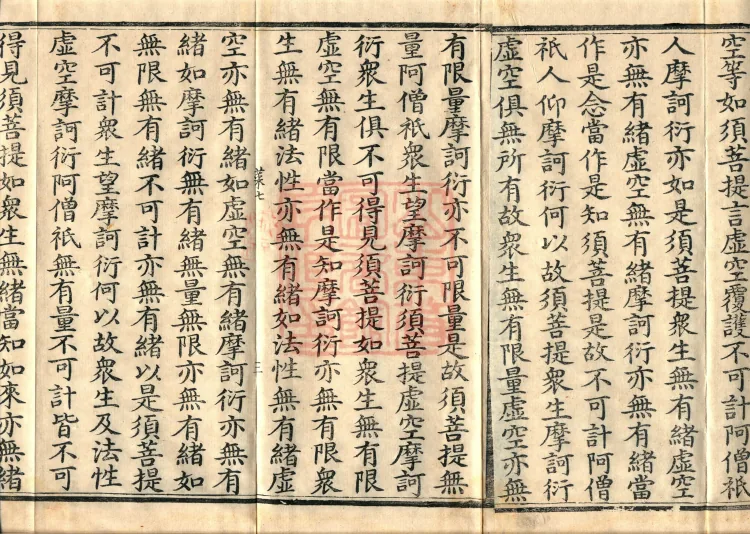 空等如須菩提言虛空覆護不可計阿僧祇
人摩訶衍亦如是須菩提衆生無有緒虛空
亦無有緒虛空無有緒摩訶衍亦無有緒當
作是念當作是知須菩提是故不可計阿僧
祇人仰摩訶衍何以故須菩提衆生摩訶衍
虛空俱無所有故衆生無有限量虛空亦無
有限量摩訶衍亦不可限量是故須菩提無
量阿僧祇衆生望摩訶衍須菩提虛空摩訶
衍衆生俱不可得見須菩提如衆生無有限
虛空無有限當作是知摩訶衍亦無有限衆
生無有緒法性亦無有緒如法性無有緒虛
菜七
三
空亦無有緒如虛空無有緒摩訶衍亦無有
緒如摩訶衍無有緒無量無限亦無有緒如
無限無有緒不可計亦無有緒以是須菩提
不可計衆生望摩訶衍何以故衆生及法性
虛空摩訶衍阿僧祇無有量不可計皆不可
得見須菩提如衆生無緒當知如來亦無緒